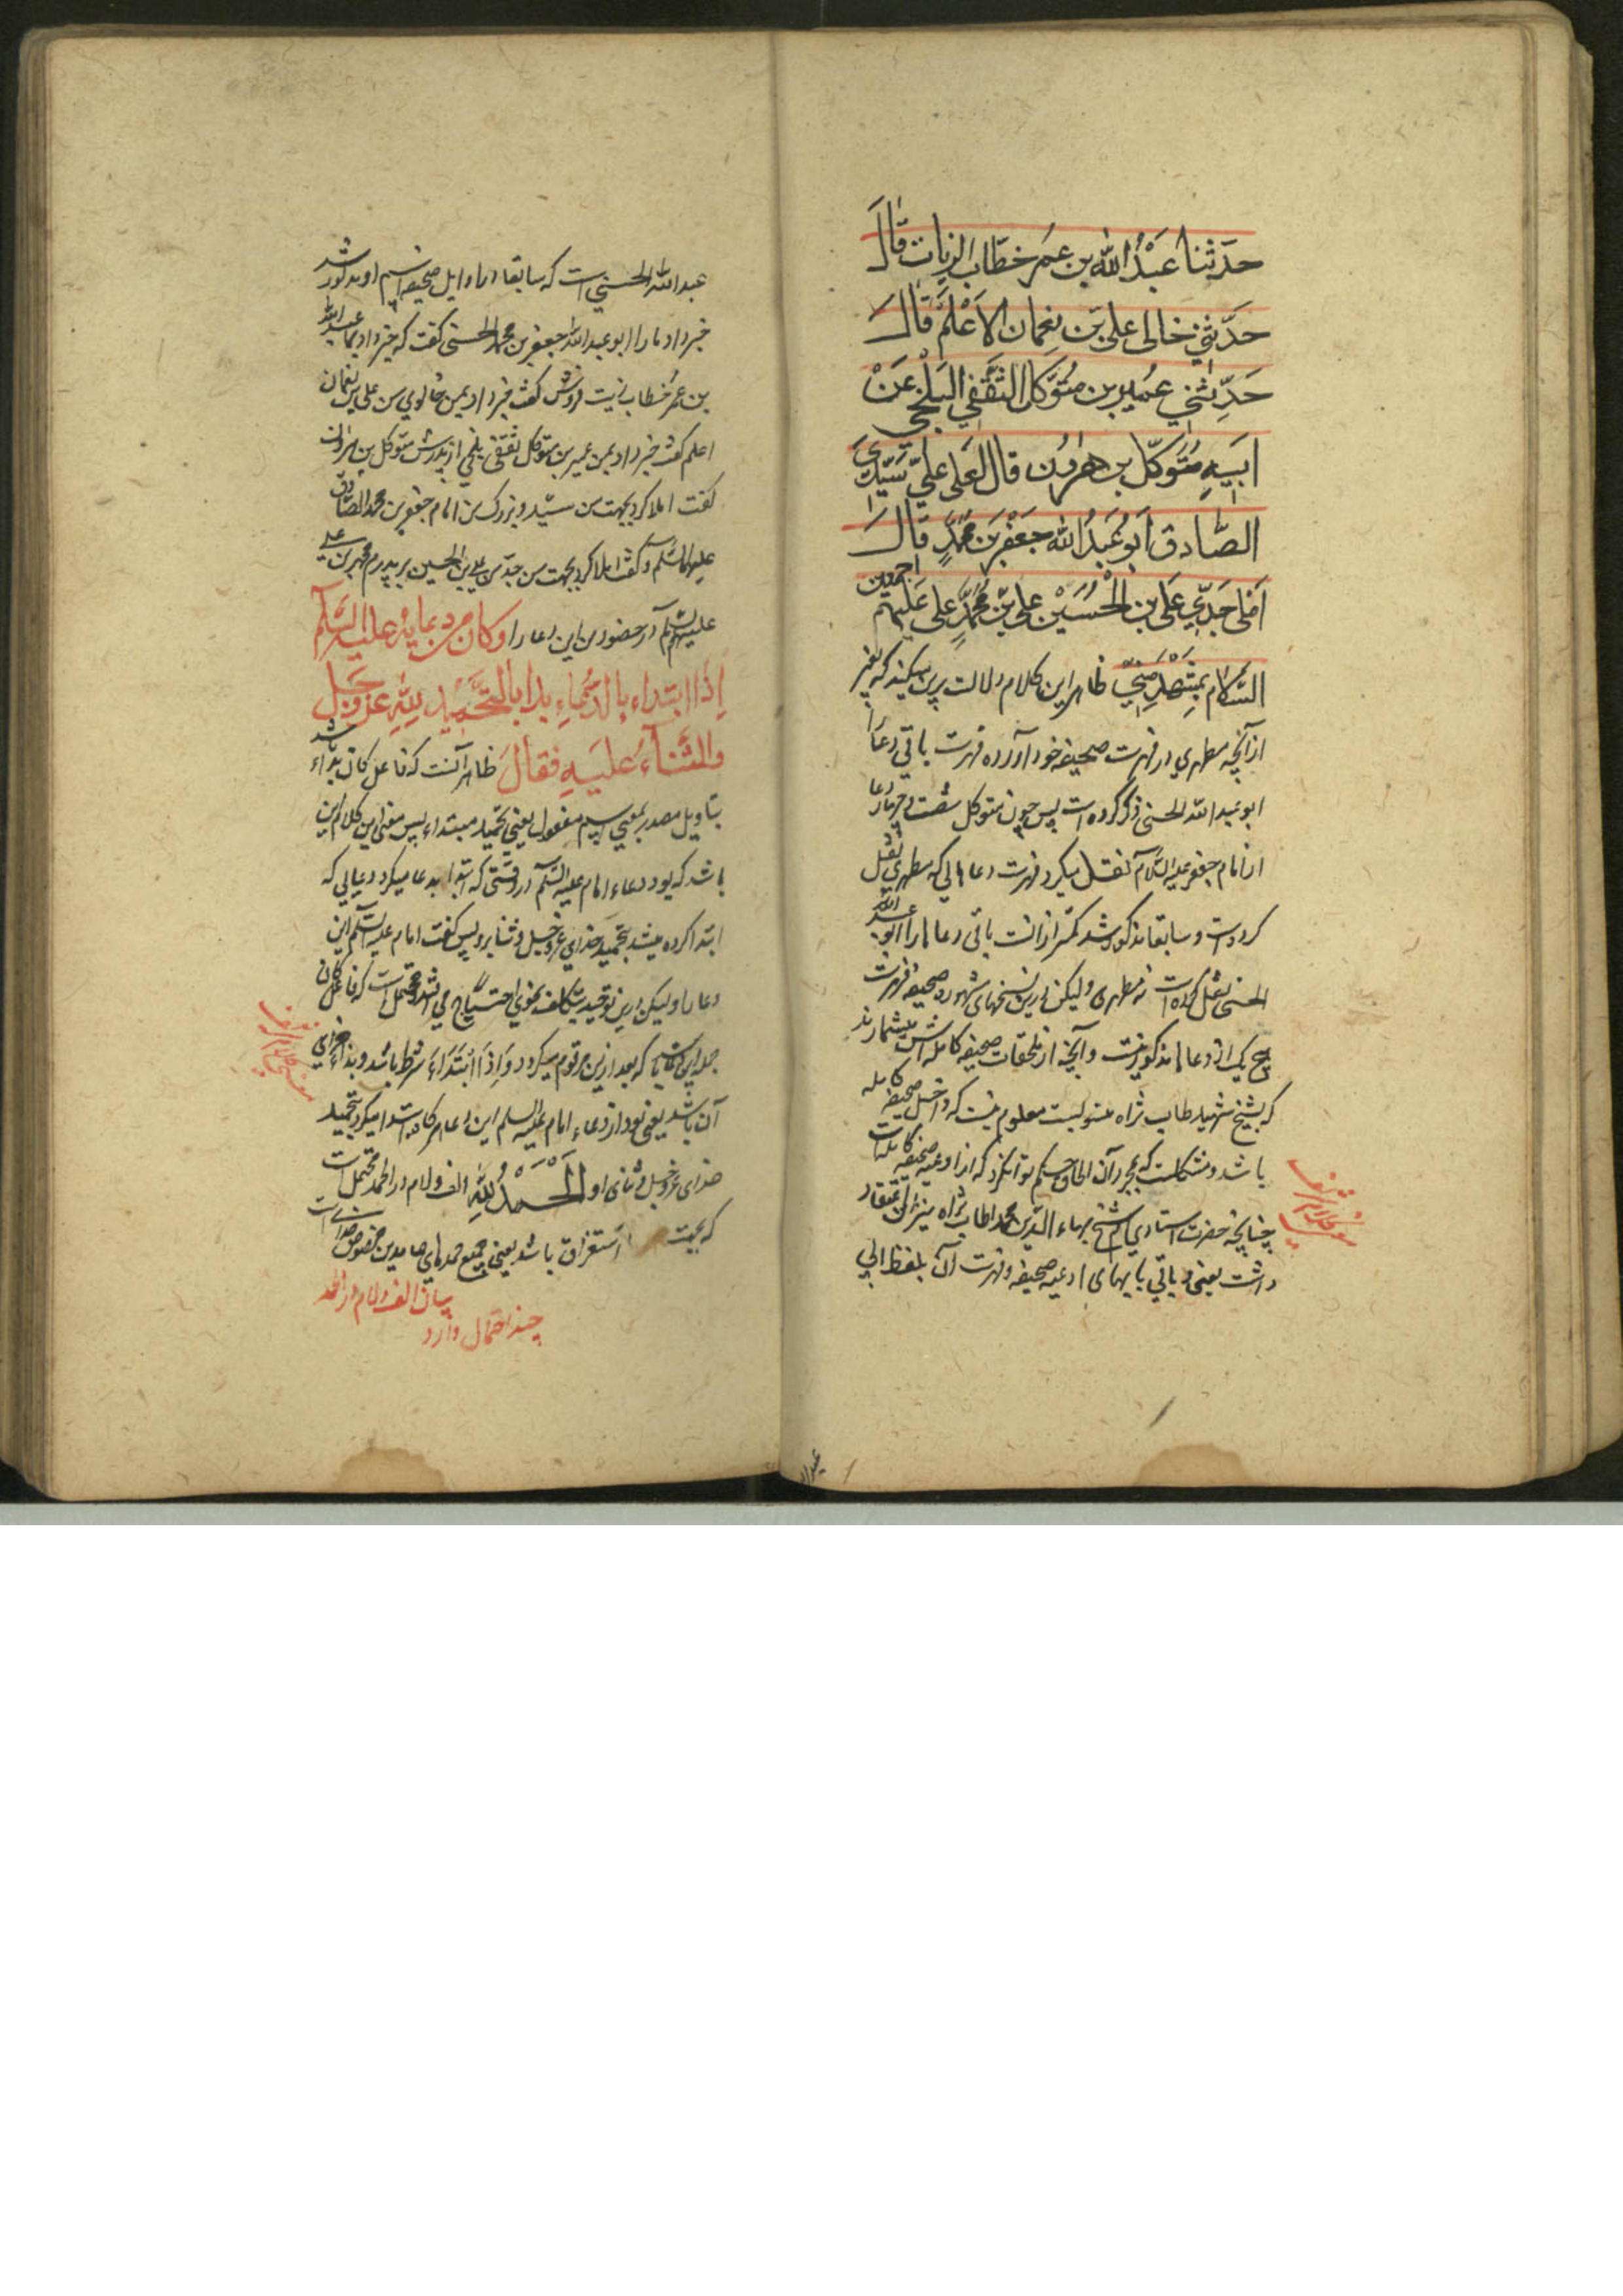 حدثنا عبد الله بن عمر خطاب الزیات قال
حدثنی خالی علی بن نعمان الاعلم قال
حدثنی عمیر بن متوکل الثقفی البلخی عن
ابیه متوکل بن هرون قال املی علی سیدی
الصادق ابو عبد الله جعفر بن محمد قال
املی جدی علی بن الحسین علی بن محمد علی علیهم اجمعین
السلام بمشهد منی ظاهر این کلام دلالت برین میکند که بغیر
از آنچه مطهری در فهرست صحیفه خود آورده فهرست باقی دعا را
ابو عبد الله الحسنی ذکر کرده است پس چون متوکل شصت و چهار دعا
از امام جعفر علیه السلام نقل میکرد فهرست دعاهایی که مطهری نقل
کرده است و سابقا مذکور شد کمتر از آنست باقی دعاها را ابو عبد الله
الحسنی نقل کرده است نه مطهری ولیکن درین نسخهای مشهوره صحیفه فهرست
هیچ یک از دعاها مذکور نیست و آنچه از ملحقات صحیفه کامله اش میشمارند
که بشیخ شهید طاب ثراه منسوبست معلوم نیست که داخل صحیفه کامله
باشد و مشکلست که بمجرد آن الحاق حکم توان کرد که از ادعیه صحیفه کامله است
چنانچه حضرت استادی شیخ بهاء الدین محمد طاب ثراه نیز این اعتقاد
داشت یعنی و باقی بابهای ادعیه صحیفه و فهرست آن بلفظ ابی
عبد الله الحسنی است که سابقا در اوایل صحیفه اسم او مذکور شد
خبر داد ما را ابو عبد الله جعفر بن محمد الحسنی گفت که خبر داد بما عبد الله
بن عمر خطاب زیت فروش گفت خبر داد بمن خالوی من علی بن نعمان
اعلم گفت خبر داد بمن عمیر بن متوکل ثقفی بلخی از پدرش متوکل بن هرون
گفت املا کرد بجهت من سید و بزرگ من امام جعفر بن محمد الصادق
علیهما السلم و گفت املا کرد بجهت من جد من علی بن الحسین بر پدرم محمد بن علی
علیهم السلم در حضور من این دعا را و کان من دعایه علیه السلم
اذا ابتداء بالدعاء بدا بالتحمید لله عز و جل
والثناء علیه فقال ظاهر آنست که فاعل کان بداء باشد
بتاویل مصدر بمعنی اسم مفعول یعنی تحمید مبتداء پس معنی این کلام این
باشد که بود دعاء امام علیه السلم در وقتی که ابتدا بدعا میکرد دعایی که
ابتدا کرده میشد بتحمید خدای عز و جل و ثنا برو پس گفت امام علیه السلم این
دعا را ولیکن درین توجیه بتکلف نحوی احتیاج می افتد و محتمل است که فاعل کان
جمله این باشد که بعد ازین مرقوم میگردد و اذا ابتداء شرط باشد و بدا جزای
آن باشد یعنی بود از دعاء امام علیه السلم این دعا هرگاه ابتدا میکرد بتحمید
خدای عز و جل و ثنای او الحمد لله الف و لام در الحمد محتمل است
که بجهت استغراق باشد یعنی جمیع حمدهای حامدین مخصوص خدا است
بیان الف و لام در الحمد
چند احتمال دارد